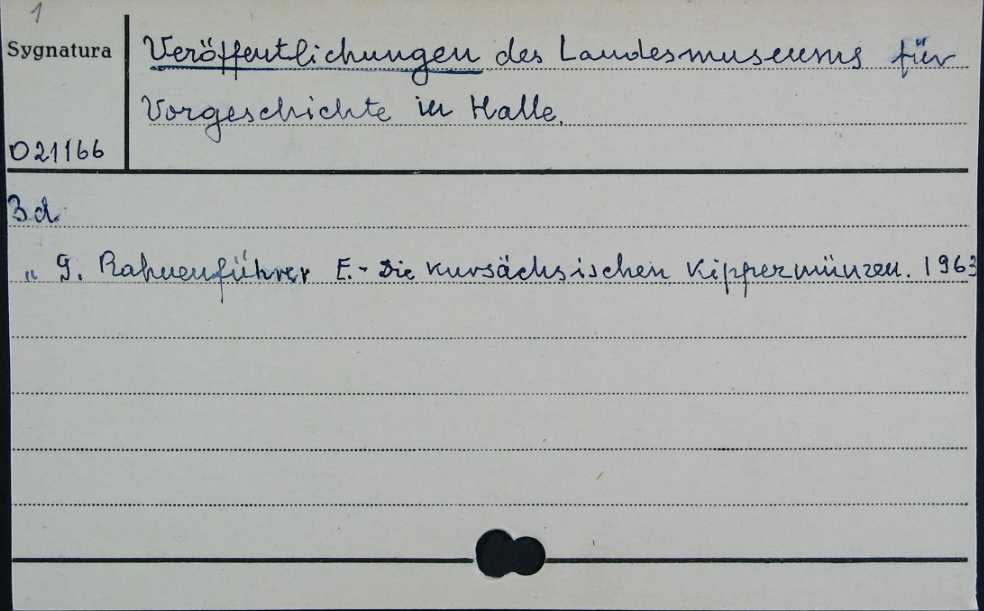 1
Sygnatura
Veröffentlichungen des Landesmuseums für
Vorgeschichte in Halle.
D21166
Bd.
„ 9. Rahnenführer E.- Die kursächsischen Kippermünzen. 1963